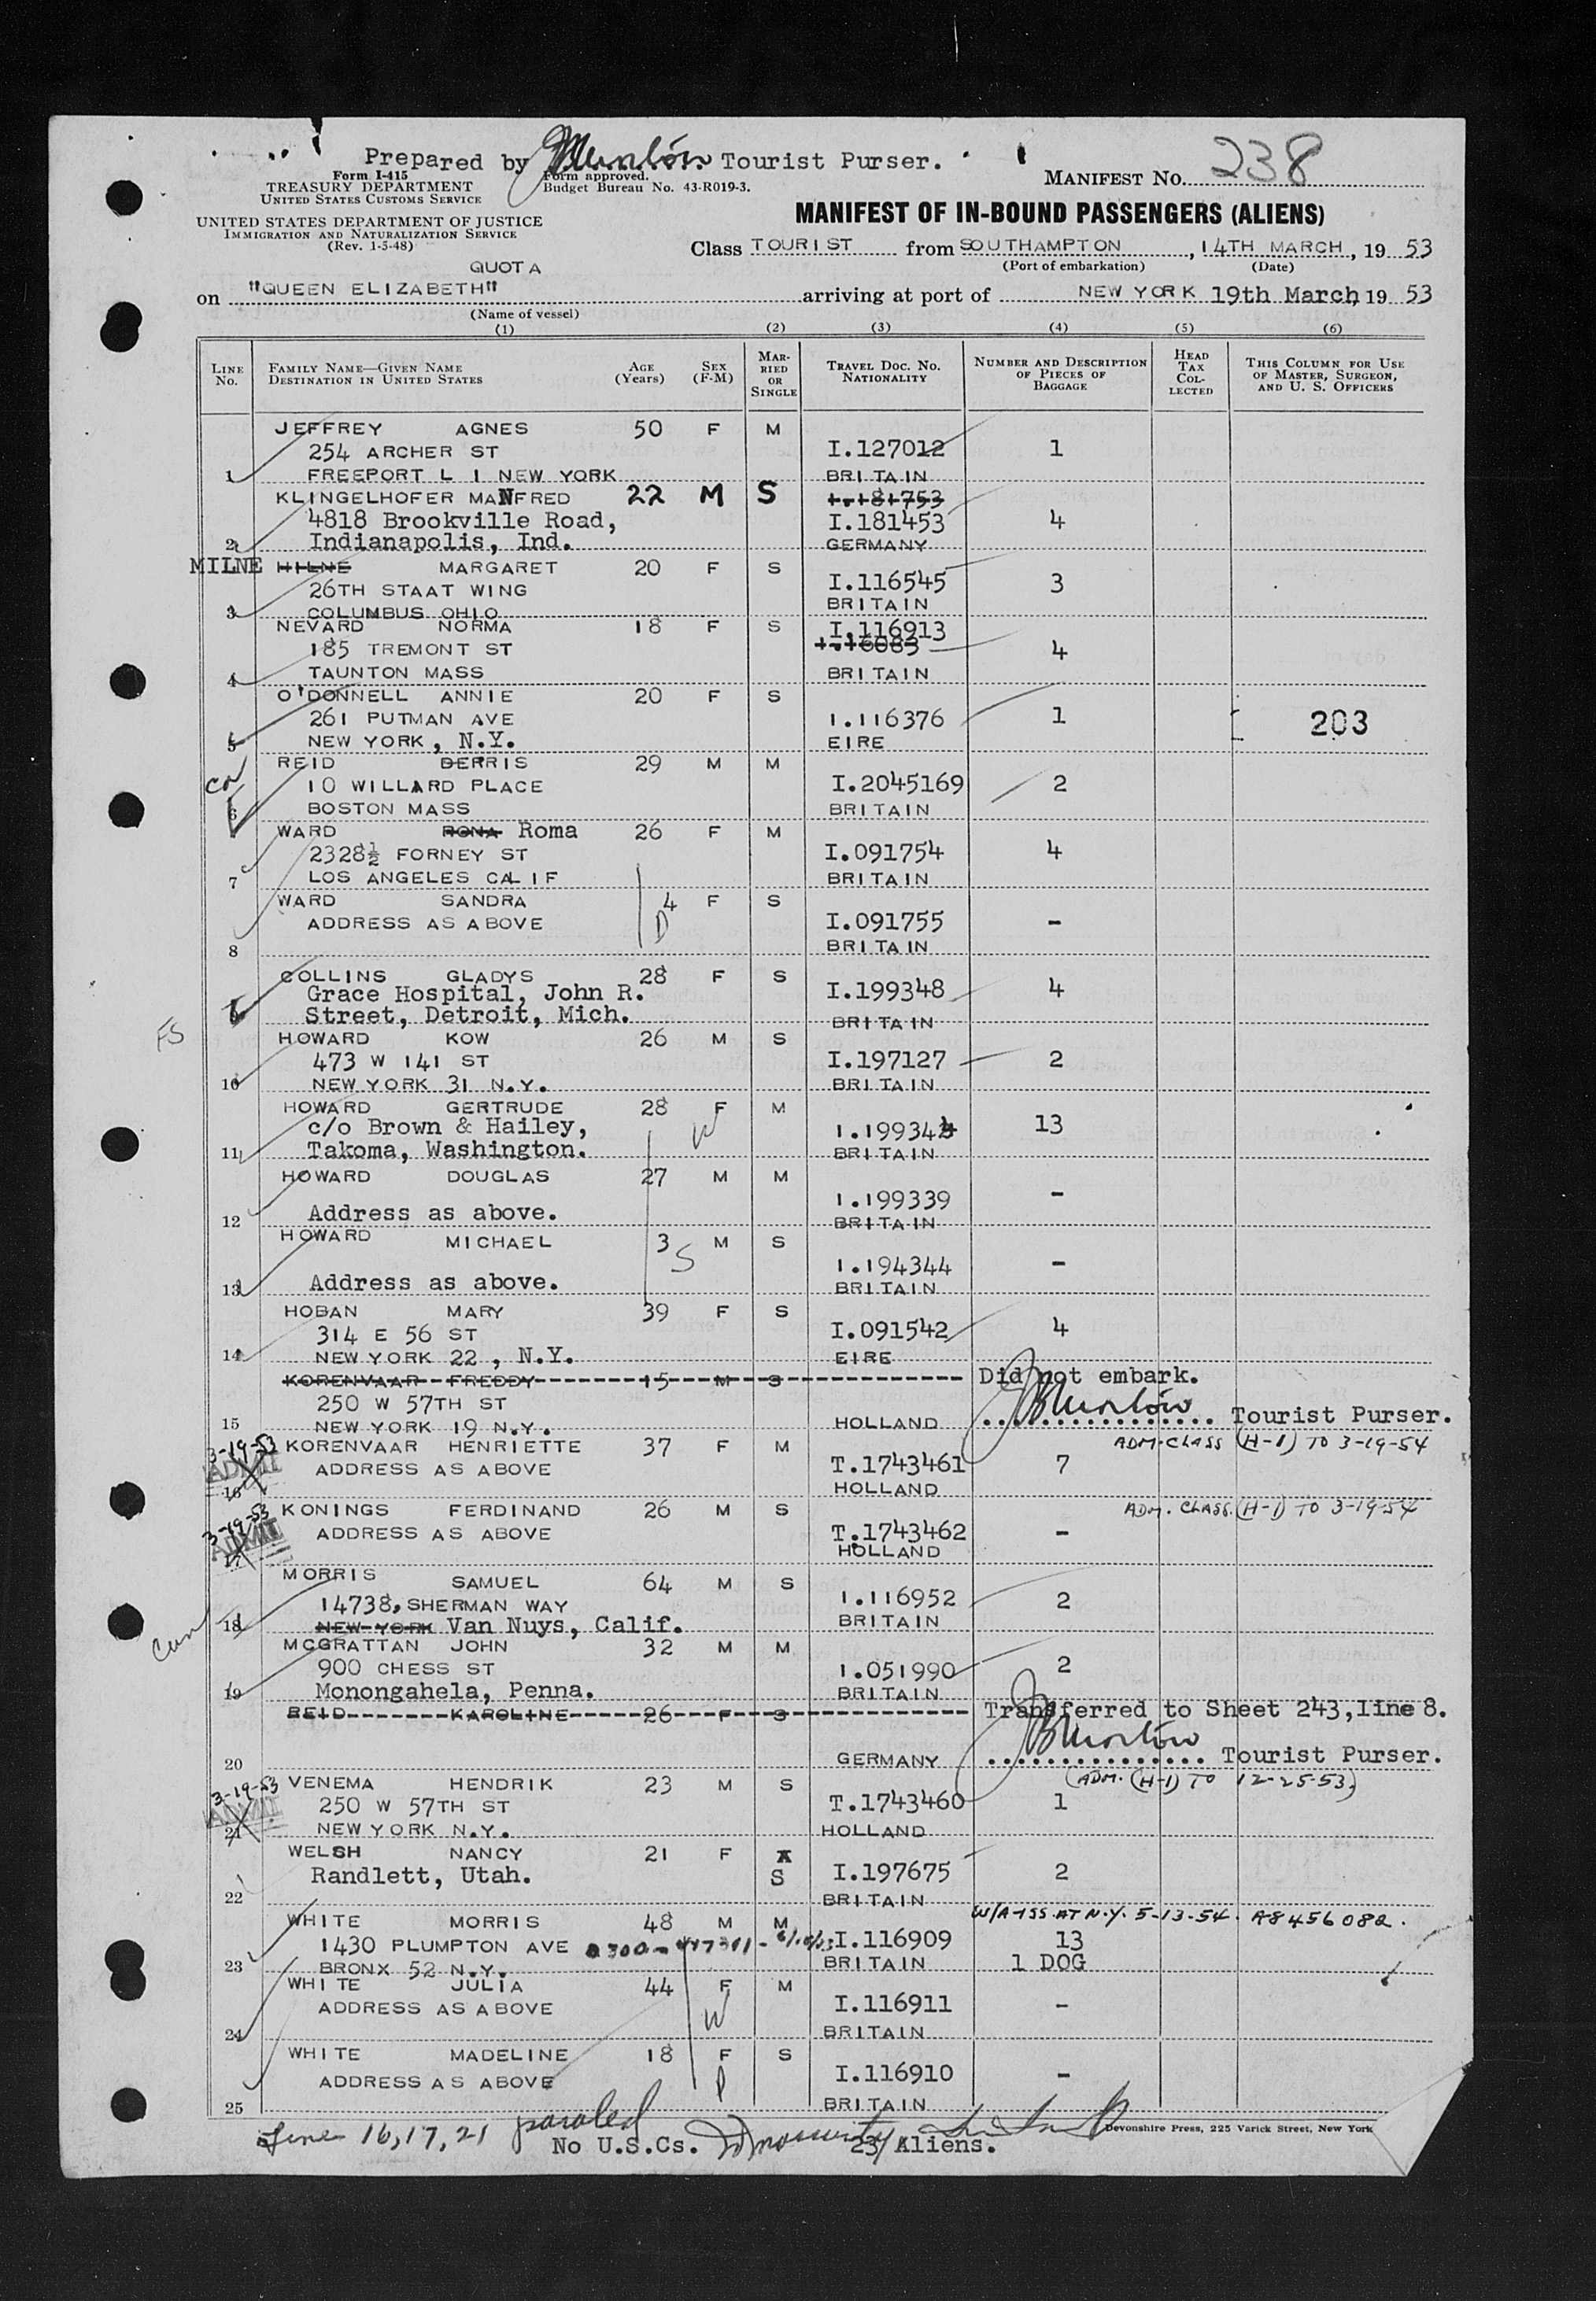 Prepared by Tourist Purser.
Form I-415
TREASURY DEPARTMENT
UNITED STATES CUSTOMS SERVICE
Form approved.
Budget Bureau No. 43-R019-3.
MANIFEST NO. 238
UNITED STATES DEPARTMENT OF JUSTICE
IMMIGRATION AND NATURALIZATION SERVICE
(Rev. 1-5-48)
MANIFEST OF IN-BOUND PASSENGERS (ALIENS)
Class TOURIST from SOUTHAMPTON, 14TH MARCH, 19 53
(Port of embarkation) (Date)
QUOTA
on "QUEEN ELIZABETH" arriving at port of NEW YORK 19th March, 19 53
(Name of vessel)
(1) (2) (3) (4) (5) (6)
LINE No. FAMILY NAME—GIVEN NAME DESTINATION IN UNITED STATES AGE (Years) SEX (F-M) MARRIED OR SINGLE TRAVEL DOC. NO. NATIONALITY NUMBER AND DESCRIPTION OF PIECES OF BAGGAGE HEAD TAX COLLECTED THIS COLUMN FOR USE OF MASTER, SURGEON, AND U. S. OFFICERS
JEFFREY AGNES 50 F M
254 ARCHER ST I.127012 1
1 FREEPORT L I NEW YORK BRITAIN
KLINGELHOFER MANFRED 22 M S I.181753
4818 Brookville Road, I.181453 4
2 Indianapolis, Ind. GERMANY
MILNE HILNE MARGARET 20 F S
26TH STAAT WING I.116545 3
3 COLUMBUS OHIO BRITAIN
NEVARD NORMA 18 F S I.116913
185 TREMONT ST I.16083 4
4 TAUNTON MASS BRITAIN
O'DONNELL ANNIE 20 F S
261 PUTMAN AVE I.116376 1 203
5 NEW YORK, N.Y. EIRE
REID DERRIS 29 M M
10 WILLARD PLACE I.2045169 2
6 BOSTON MASS BRITAIN
WARD RONA Roma 26 F M
2328½ FORNEY ST I.091754 4
7 LOS ANGELES CALIF BRITAIN
WARD SANDRA 4 F S
ADDRESS AS ABOVE D I.091755 -
8 BRITAIN
COLLINS GLADYS 28 F S
Grace Hospital, John R. I.199348 4
Street, Detroit, Mich. BRITAIN
FS
HOWARD KOW 26 M S
473 W 141 ST I.197127 2
10 NEW YORK 31 N.Y. BRITAIN
HOWARD GERTRUDE 28 F M
c/o Brown & Hailey, W 13
11 Takoma, Washington. BRITAIN
HOWARD DOUGLAS 27 M M
I.199339 -
12 Address as above. BRITAIN
HOWARD MICHAEL 3 M S
S I.194344 -
13 Address as above. BRITAIN
HOBAN MARY 39 F S
314 E 56 ST I.091542 4
14 NEW YORK 22, N.Y. EIRE
KORENVAAR FREDDY 15 M S Did not embark.
250 W 57TH ST
15 NEW YORK 19 N.Y. HOLLAND Tourist Purser.
3-19-53 KORENVAAR HENRIETTE 37 F M ADM. CLASS (H-1) TO 3-19-54
ADMIT ADDRESS AS ABOVE T.1743461 7
16 HOLLAND
3-19-53 KONINGS FERDINAND 26 M S ADM. CLASS. (H-1) TO 3-19-54
ADMIT ADDRESS AS ABOVE T.1743462 -
17 HOLLAND
MORRIS SAMUEL 64 M S
14738, SHERMAN WAY I.116952 2
18 NEW YORK Van Nuys, Calif. BRITAIN
MCGRATTAN JOHN 32 M M
900 CHESS ST I.051990 2
19 Monongahela, Penna. BRITAIN
REID KAROLINE 26 F S Transferred to Sheet 243, line 8.
20 GERMANY Tourist Purser.
3-19-53 VENEMA HENDRIK 23 M S (ADM. (H-1) TO 12-25-53)
ADMIT 250 W 57TH ST T.1743460 1
21 NEW YORK N.Y. HOLLAND
WELSH NANCY 21 F
Randlett, Utah. S I.197675 2
22 BRITAIN
W/A-155 AT N.Y. 5-13-54. A8456082.
WHITE MORRIS 48 M M
1430 PLUMPTON AVE I.116909 13
23 BRONX 52 N.Y. BRITAIN 1 DOG
WHITE JULIA 44 F M
ADDRESS AS ABOVE W I.116911 -
24 BRITAIN
WHITE MADELINE 18 F S
ADDRESS AS ABOVE D I.116910 -
25 BRITAIN
Line 16, 17, 21 paroled
No U.S.Cs. 23 Aliens.
Devonshire Press, 225 Varick Street, New York